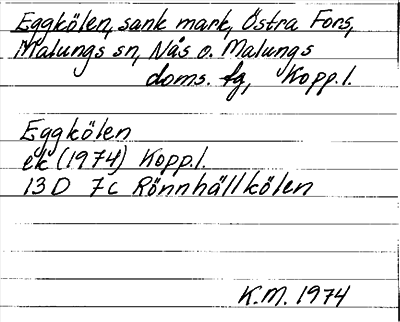 Eggkölen, sank mark, Östra Fors,
Malungs sn, Nås o. Malungs
doms. fg, Kopp.l.
Eggkölen
ek (1974) Kopp.l.
13 D 7c Rönnhällkölen
K.M. 1974